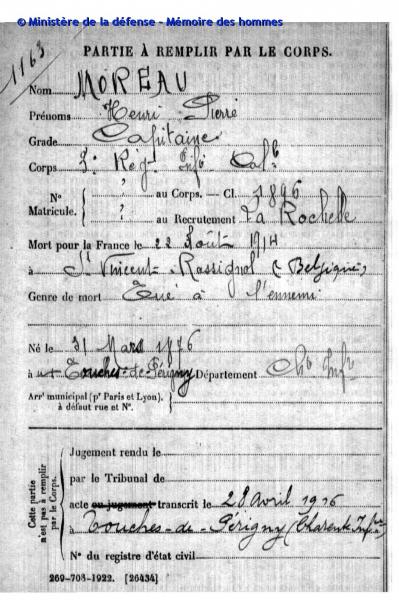 © Ministère de la défense - Mémoire des hommes
1163
PARTIE À REMPLIR PAR LE CORPS.
Nom MOREAU
Prénoms Henri Pierre
Grade Capitaine
Corps 3e Régt Infie Cale
No Matricule. { " au Corps. — Cl. 1896
" au Recrutement La Rochelle
Mort pour la France le 22 Août 1914
à St Vincent-Rossignol (Belgique)
Genre de mort Tué à l'ennemi
Né le 31 Mars 1876
à Touches-de-Périgny Département Chte Infre
Arrt municipal (pr Paris et Lyon), à défaut rue et No. {
Cette partie n'est pas à remplir par le Corps.
Jugement rendu le
par le Tribunal de
acte ou jugement transcrit le 28 avril 1916
à Touches-de-Périgny (Charente Infre)
No du registre d'état civil
269-708-1922. [26434]